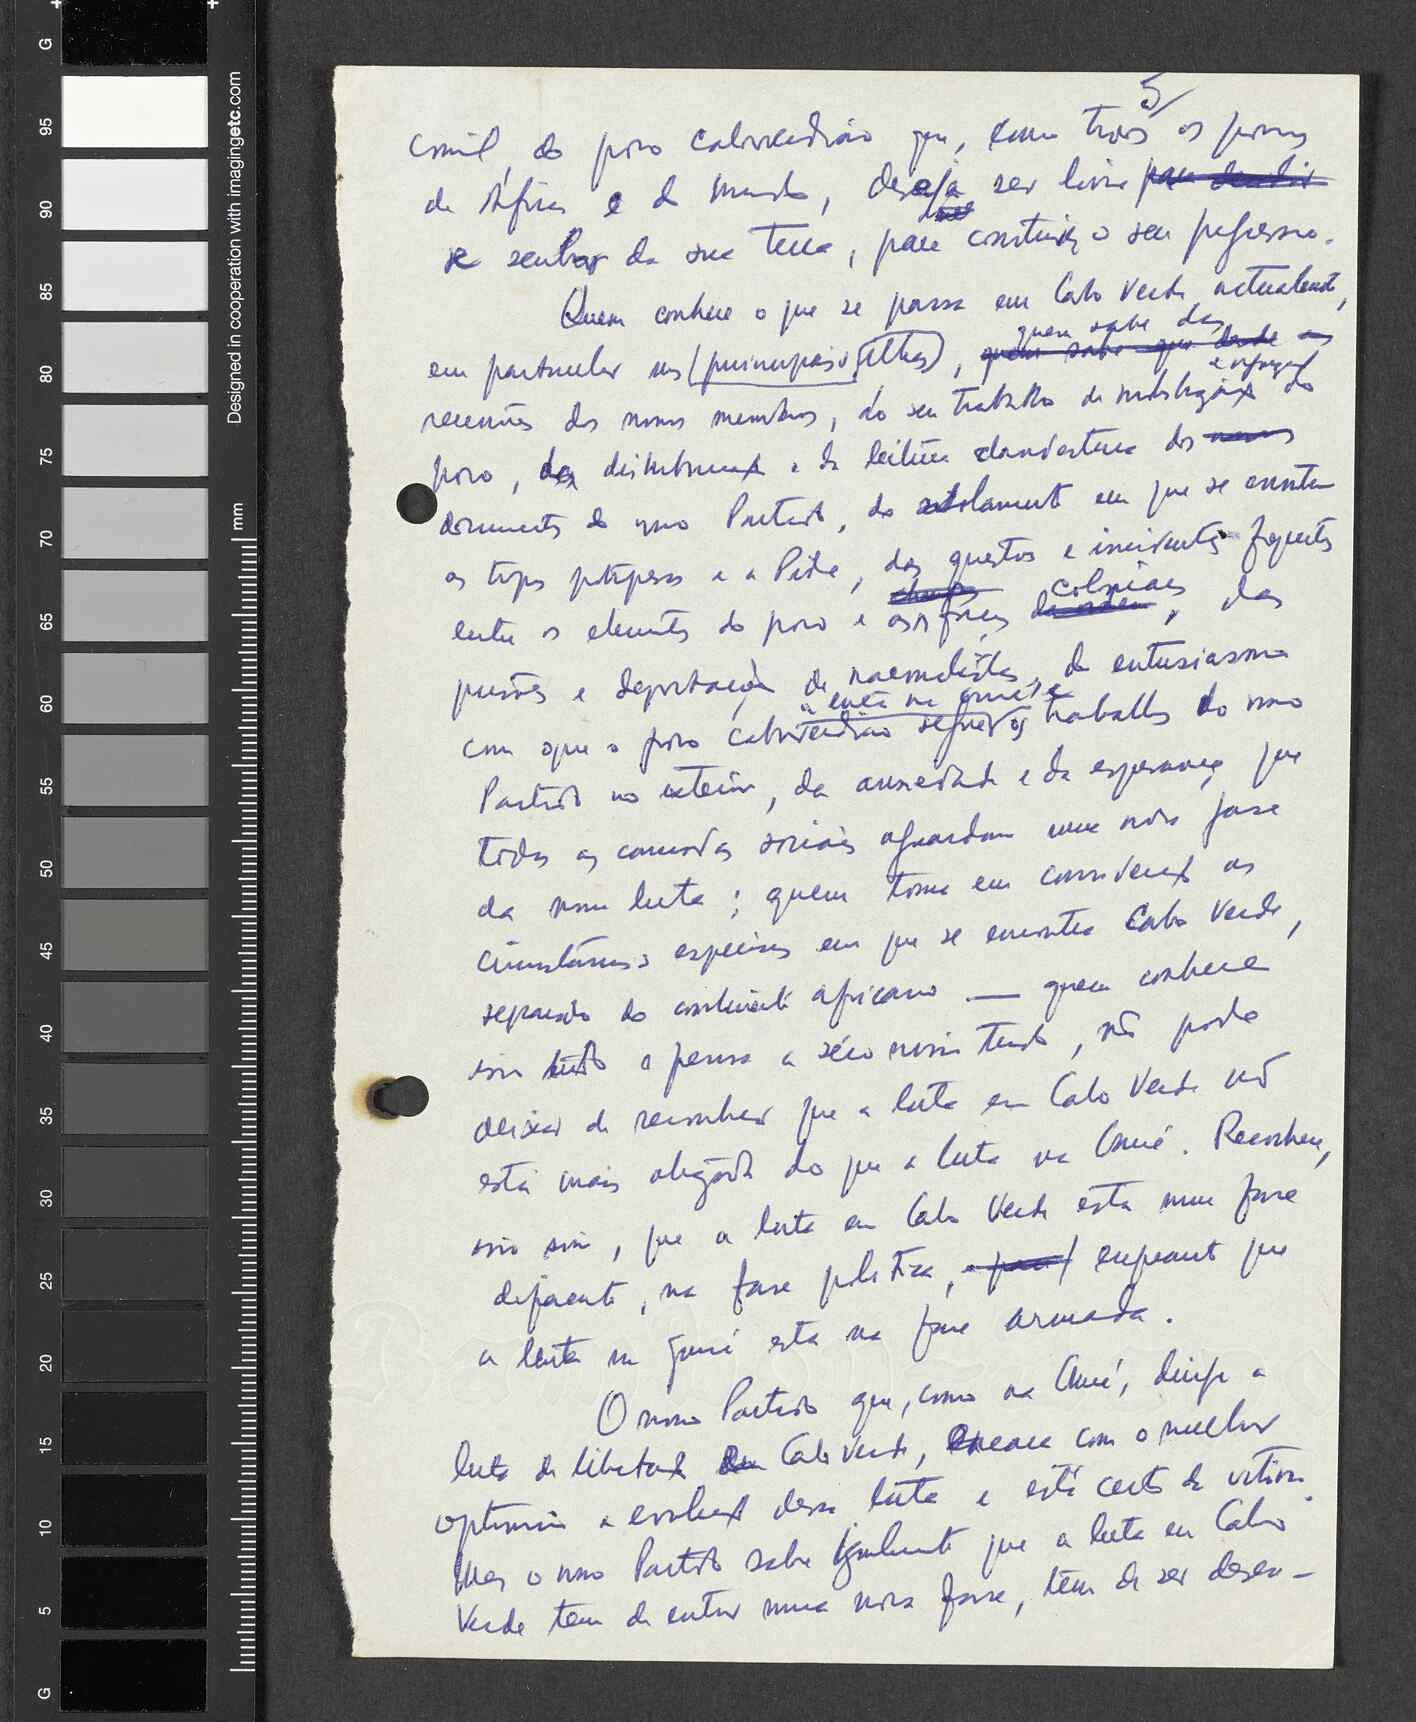 5/
do povo caboverdiano que, como todos os povos
de África e do mundo, deseja ser livre para decidir
e senhor da sua terra, para construir o seu progresso.
Quem conhece o que se passa em Cabo Verde actualmente,
em particular nas (principais ilhas), quem sabe das
reuniões dos nossos membros, do seu trabalho de mobilização e organização do
povo, da distribuição e da leitura clandestina dos
documentos do nosso Partido, do isolamento em que se encontram
as tropas portuguesas e a Pide, das questões e incidentes frequentes
entre os elementos do povo e as forças coloniais, das
prisões e deportação de nacionalistas, do entusiasmo
com que o povo caboverdiano segue a luta na Guiné e os trabalhos do nosso
Partido no exterior, da ansiedade e da esperança que
todas as camadas sociais aguardam uma nova fase
da nossa luta; quem toma em consideração as
circunstâncias especiais em que se encontra Cabo Verde,
separado do continente africano — quem conhece
isso tudo e pensa a sério nisso tudo, não pode
deixar de reconhecer que a luta em Cabo Verde não
está mais atrasada do que a luta na Guiné. Reconhece,
isso sim, que a luta em Cabo Verde está numa fase
diferente, na fase política, enquanto que
a luta na Guiné está na fase armada.
O nosso Partido que, como na Guiné, dirige a
luta de libertação em Cabo Verde, encara com o melhor
optimismo a evolução dessa luta e está certo da vitória.
Mas o nosso Partido sabe igualmente que a luta em Cabo
Verde tem de entrar numa nova fase, tem de ser desen-